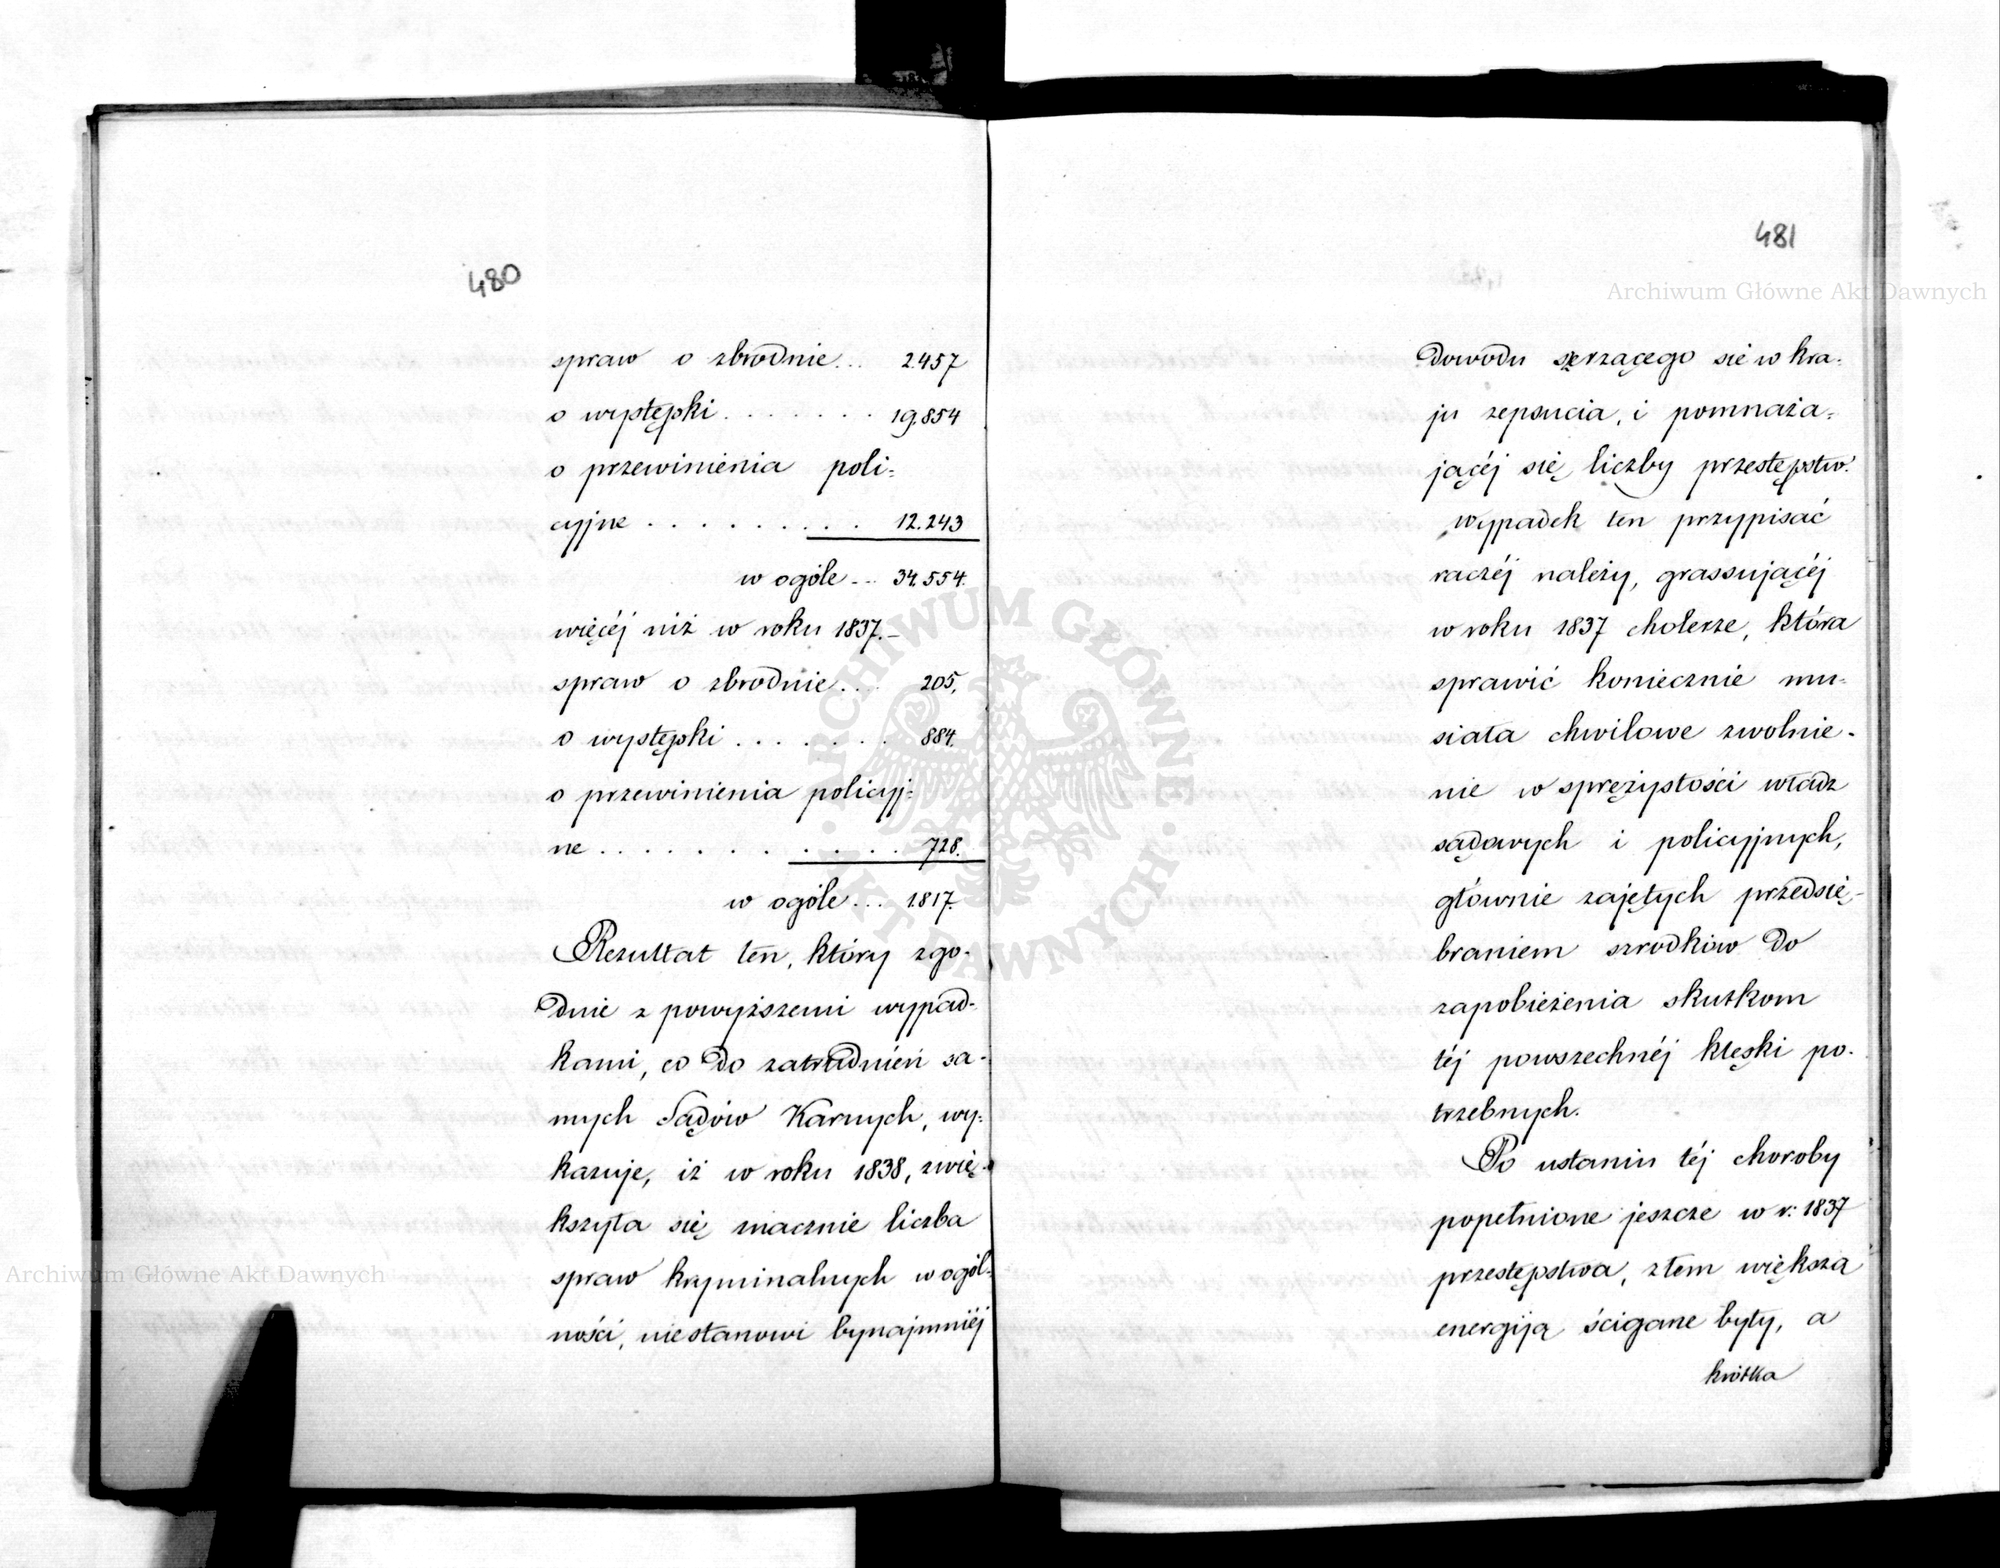 480
spraw o zbrodnie... 2.457
o występki....... 19.854
o przewinienia poli=
cyjne......... 12.243
w ogóle... 34.554.
więcéj niż w roku 1837.-
spraw o zbrodnie... 205,
o występki....... 884.
o przewinienia policyj=
ne............ 728.
w ogóle... 1.817.
Rezultat ten, który zgo-
dnie z powyższemi wypad-
kami, co do zatrudnień sa-
mych Sądów Karnych, wy=
kazuje, iż w roku 1838, zwię-
kszyła się znacznie liczba
spraw kryminalnych w ogól-
ności, niestanowi bynajmniéj
481
dowodu szerzącego się w kra=
ju zepsucia, i pomnaża=
jącéj się liczby przestępstw.
wypadek ten przypisać
raczéj należy, grassującéj
w roku 1837 cholerze, która
sprawić koniecznie mu-
siała chwilowe zwolnie-
nie w sprężystości władz
sądowych i policyjnych,
głównie zajętych przedsię-
braniem szrodków do
zapobieżenia skutkom
téj powszechnéj klęski po-
trzebnych.
Po ustaniu téj choroby
popełnione jeszcze w r: 1837
przestępstwa, z tem większą
energiją ścigane były, a
krótka
Archiwum Główne Akt Dawnych
Archiwum Główne Akt Dawnych
ARCHIWUM GŁÓWNE AKT DAWNYCH